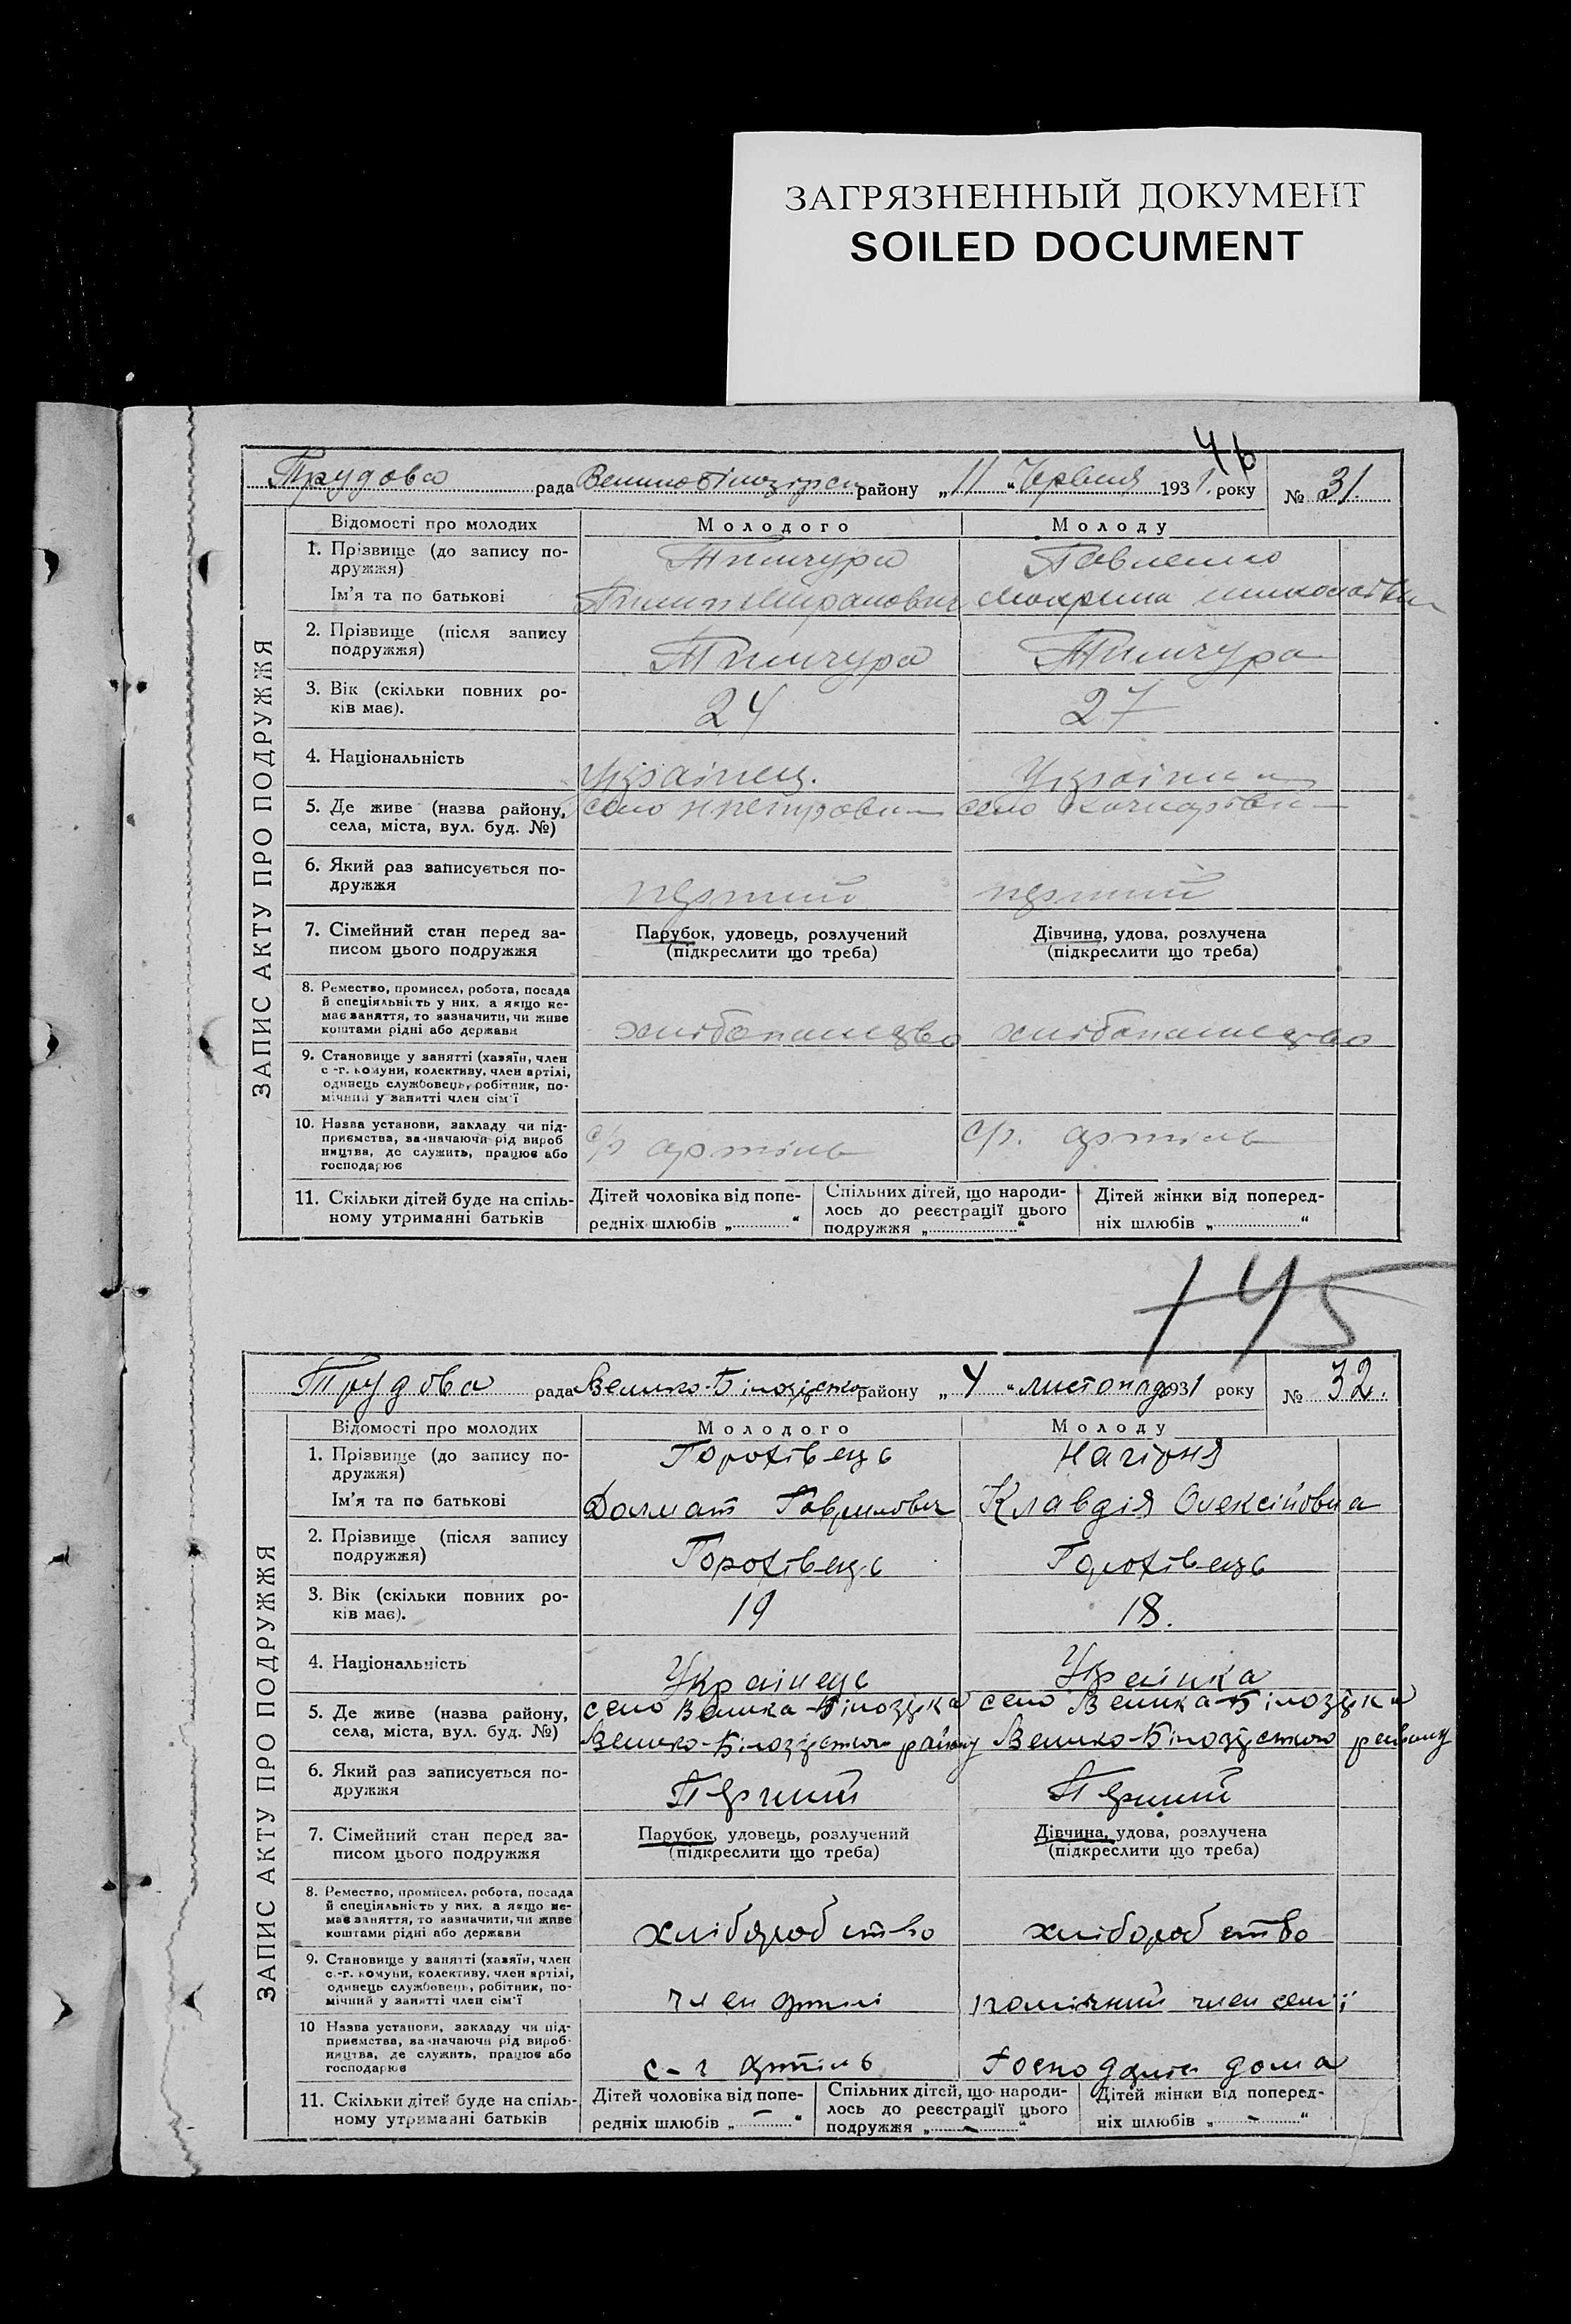 ЗАГРЯЗНЕННЫЙ ДОКУМЕНТ
SOILED DOCUMENT
46
Трудова рада району „11“ Червня 1931. року № 31.
ЗАПИС АКТУ ПРО ПОДРУЖЖЯ
Відомості про молодих Молодого Молоду
1. Прізвище (до запису по-
дружжя)
Ім’я та по батькові
2. Прізвище (після запису
подружжя)
3. Вік (скільки повних ро-
ків має). 24 27
4. Національність Українец.
5. Де живе (назва району, село село
села, міста, вул. буд. №)
6. Який раз записується по-
дружжя перший перший
7. Сімейний стан перед за- Парубок, удовець, розлучений Дівчина, удова, розлучена
писом цього подружжя (підкреслити що треба) (підкреслити що треба)
8. Ремество, промисел, робота, посада
й спеціяльність у них, а якщо не-
має заняття, то зазначити, чи живе
коштами рідні або держави
9. Становище у занятті (хазяїн, член
с.-г. комуни, колективу, член артілі,
одинець службовець, робітник, по-
мічний у занятті член сім’ї
10. Назва установи, закладу чи під-
приємства, зазначаючи рід вироб
ництва, де служить, працює або артіль артіль
господарює
11. Скільки дітей буде на спіль- Дітей чоловіка від попе- Спільних дітей, що народи- Дітей жінки від поперед-
ному утриманні батьків редніх шлюбів „ “ лось до реєстрації цього ніх шлюбів „ “
подружжя „ “
45
Трудова рада району „4“ листопад 1931 року № 32.
ЗАПИС АКТУ ПРО ПОДРУЖЖЯ
Відомості про молодих Молодого Молоду
1. Прізвище (до запису по- Горохівець
дружжя)
Ім’я та по батькові Далмат Гаврилович Клавдія Олексійовна
2. Прізвище (після запису
подружжя) Горохівець Горохівець
3. Вік (скільки повних ро- 19 18.
ків має).
4. Національність Українець Українка
5. Де живе (назва району, село Велика-Білозірка село Велика-Білозірка
села, міста, вул. буд. №) Велико-Білозірського району Велико-Білозірського району
6. Який раз записується по-
дружжя Перший Перший
7. Сімейний стан перед за- Парубок, удовець, розлучений Дівчина, удова, розлучена
писом цього подружжя (підкреслити що треба) (підкреслити що треба)
8. Ремество, промисел, робота, посада
й спеціяльність у них, а якщо не-
має заняття, то зазначити, чи живе
коштами рідні або держави хліборобство хліборобство
9. Становище у занятті (хазяїн, член
с.-г. комуни, колективу, член артілі,
одинець службовець, робітник, по-
мічний у занятті член сім’ї член артілі помічний член семії
10 Назва установи, закладу чи під-
приємства, зазначаючи рід вироб-
ництва, де служить, працює або
господарює с-г артіль дома
11. Скільки дітей буде на спіль- Дітей чоловіка від попе- Спільних дітей, що народи- Дітей жінки від поперед-
ному утриманні батьків редніх шлюбів „ — “ лось до реєстрації цього ніх шлюбів „ — “
подружжя „ — “